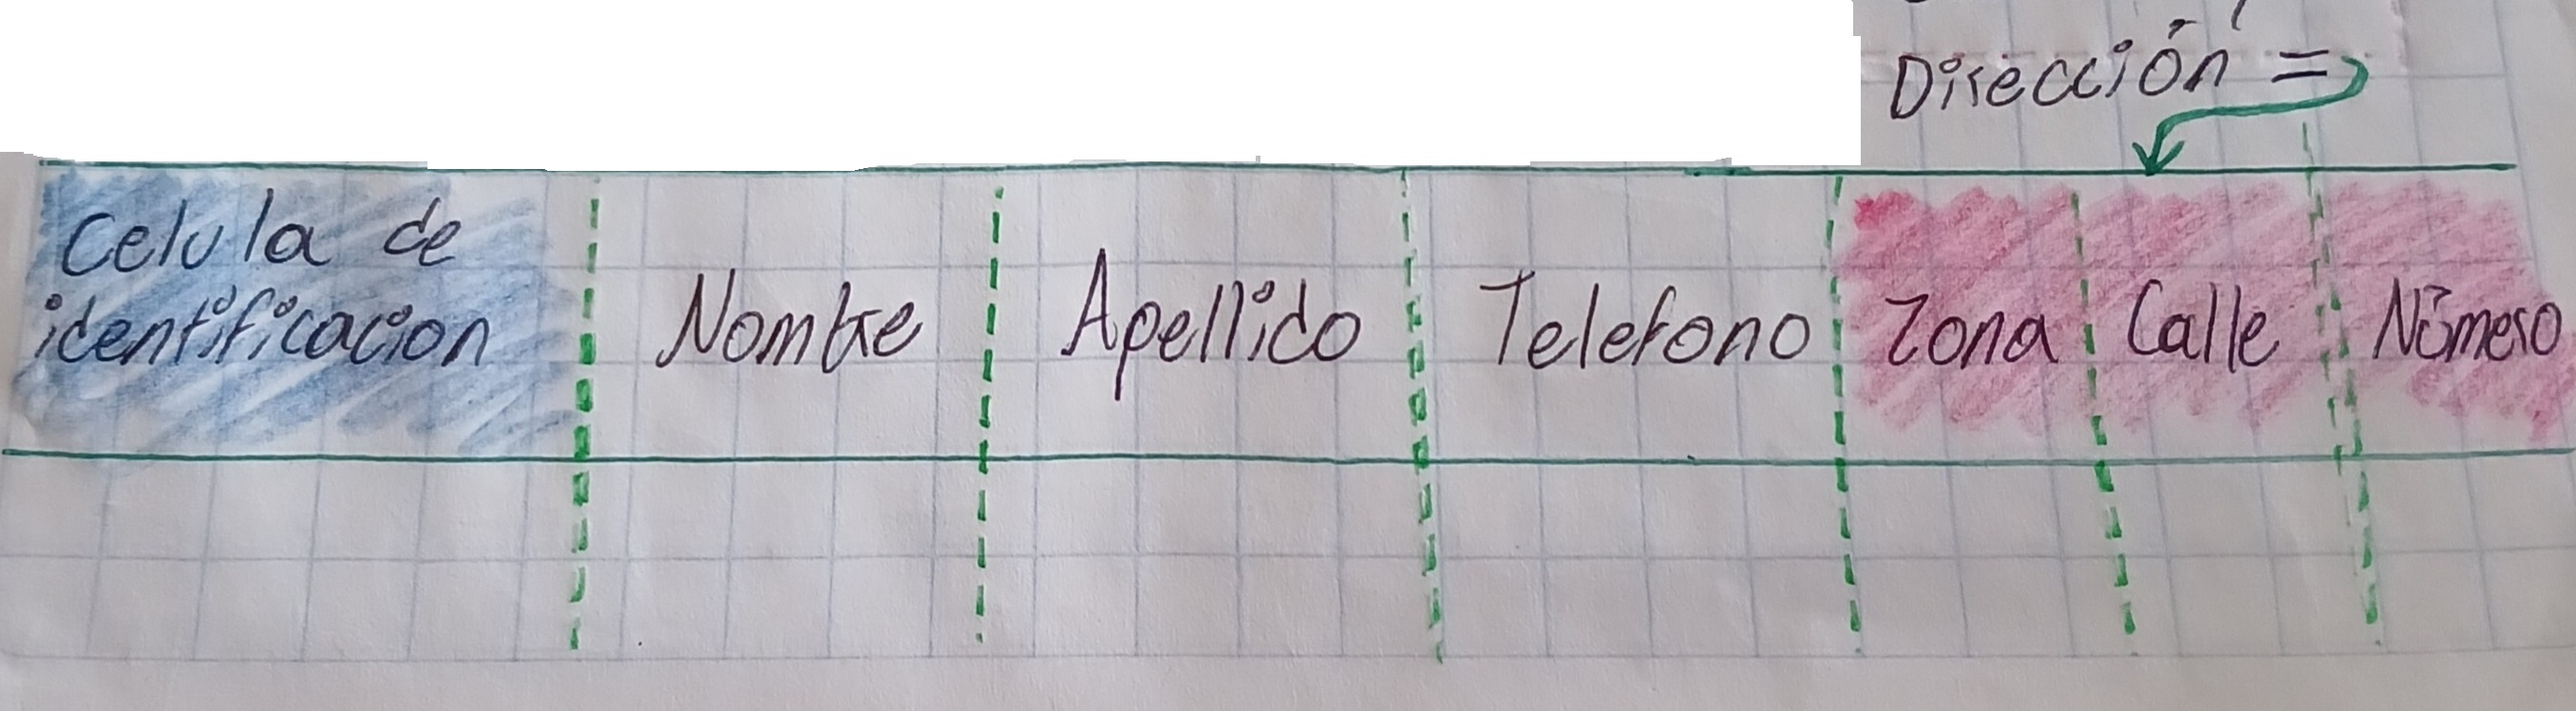 Dirección =
Celula de
identificacion
Nombre
Apellido
Telefono
Zona
Calle
Número